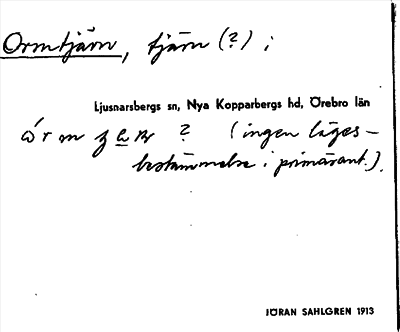 Ormtjärn, tjärn (?) i
Ljusnarsbergs sn, Nya Kopparbergs hd, Örebro län
? (ingen läges-
bestämmelse i primärant.).
JÖRAN SAHLGREN 1913